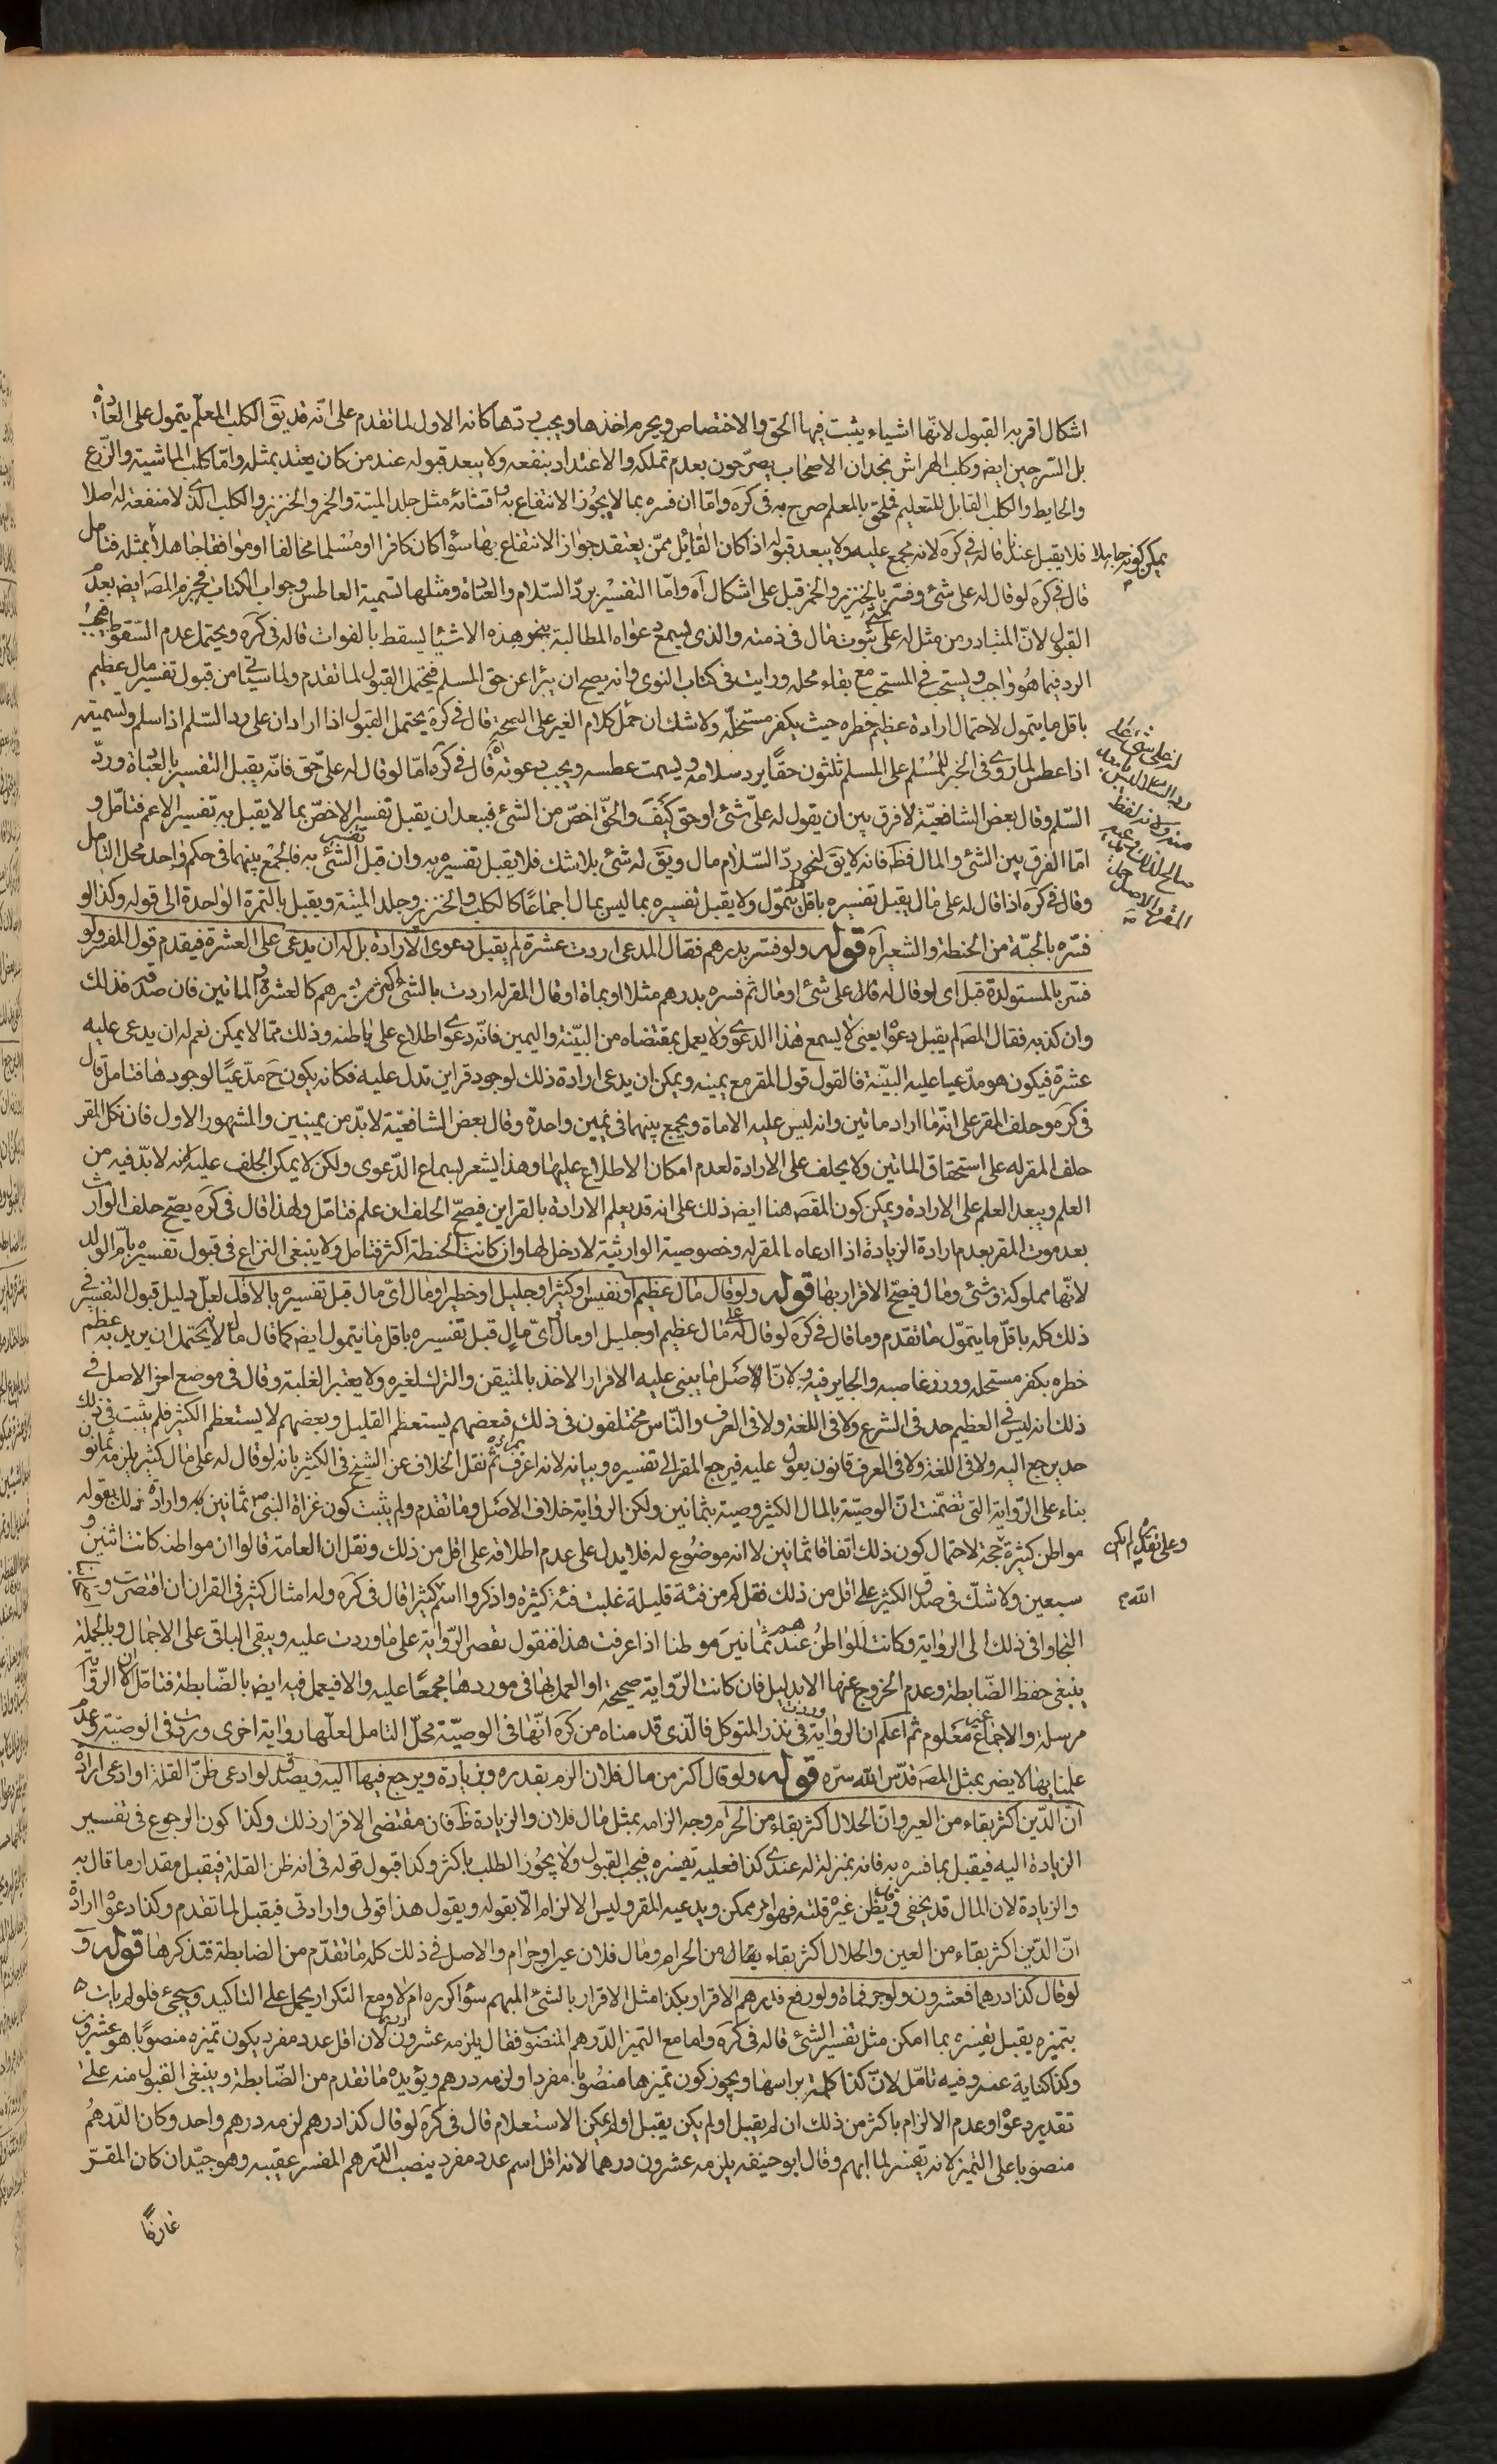 اشكال اقربه القبول لانّها اشياء يثبت فيها الحق والاختصاص ويحرم اخذها ويجب ردّها كانه الاول لما تقدم على انّه قد يقَ الكلب المعلّم يتمول على العادة
بل السّرجين ايضَ وكلب الهراش نجد ان الاصحاب يصرّحون بعدم تملكه والاعتداد بنفعه ولا يبعد قبوله عند من كان يعتد بمثله وامّا كلب الماشية والزّرع
والحايط والكلب القابل للتعليم فملحق بالمعلم صرح به فى كرَه وامّا ان فسره بما لا يجُوز الانتفاع به واقتنائه مثل جلد الميتة والخمر والخنزير والكلب الذى لا منفعة له اصلا
فلا يقبل عندنا قاله فى كرَه لانه مجمع عليه ولا يبعد قبوله اذا كان القائل ممّن يعتقد جواز الانتفاع بها سوٰا كان كافرا او مُسْلما مخالفا او موافقا جاهلا بمثله فتامل
يمكن كونه جاهلا
قال فى كرَه لو قال له على شئ وفسّر بالخنزير والخمر قبل على اشكال اه وامّا التفسير بردّ السّلام والعيادة ومثلها تسمية العاطس وجواب الكتاب فجزم المصَ ايضَ بعدم
القبول لانّ المتبادر من مثل له علىّ ثبوت مال فى ذمته والذى ليسمع دعواه المطالبة بنحو هذه الاشيا يسقط بالفوات قاله فى كرَه ويحتمل عدم السّقوط فيجب
الرد فيما هُو واجب ويستحب فى المستحب مع بقاء محله ورايت فى كتاب النوى وانه يصح ان يبرٔا عن حق المسلم فيحتمل القبول لما تقدم ولما سياتى من قبول تفسير مال عظيم
باقل ما يتمول لاحتمال ارادة عظيم خطره حيث يكفر مستحلّه ولا شك ان حمل كلام الغير على الصحّة قال فى كرَه يحتمل القبول اذا اراد ان على رد السّلم اذا سلم وتسميته
اذا عطس لما روى فى الخبر للمُسْلم على المسلم ثلثون حقًّا يرد سلامه ويسمت عطسه ويجيب دعوته قال فى كرَه امّا لو قال له على حق فانّه يقبل التفسير بالعيادة وردّ
السّلم وقال بعض الشافعيّة لا فرق بين ان يقول له علىّ شئ او حق كَيْفَ والحقّ اخصّ من الشئ فيبعد ان يقبل تفسير الاخصّ بما لا يقبل به تفسير الاعم فتامّل و
امّا الفرق بين الشئ والمال فظَ فانه لا يقَ لنحو ردّ السّلام مال ويقَ له شئ بلا شك فلا يقبل تفسيره به وان قبل تفسير الشئ به فالجمْع بينهما فى حكم واحد محل التامل
وقال فى كرَه اذا قال له على مال يقبل تفسيره باقل ما يتموّل ولا يقبل تفسيره بما ليس بمال اجماعًا كالكلب والخنزير وجلد الميتة ويقبل بالتمرة الواحدة الى قوله وكذا لو
فسّره بالحبّة من الحنطة والشعير اه قوله ولو فسّر بدرهم فقال المدعى اردت عشرة لم يقبل دعوى الارادة بل له ان يدعى على العشرة فيقدم قول المقر ولو
فسّر بالمستولدة قبل اى لو قال له قال على شئ او مال ثم فسره بدرهم مثلا او بماة او قال المقر له اردت بالشئ اكثر من درهم كالعشرة والماتين فان صدقه فذلك
وان كذبه فقال المصَ لم يقبل دعوٰا يعنى لا يسمع هذا الدعوى ولا يعمل بمقتضاه من البيّنة واليمين فانّه دعوى اطلاع على باطنه وذلك ممّا لا يمكن نعم له ان يدعى عليه
عشرة فيكون هو مدّعيا عليه البيّنة فالقول قول المقر مع يمينه ويمكن ان يدعى ارادة ذلك لوجود قراين تدل عليه فكانه يكون حَ مدّعيًا لوجودها فتامل قال
فى كرَه وحلف المقر على انّه ما اراد ماتين وانه ليس عليه الا ماة ويجمع بينهما فى يمين واحدة وقال بعض الشافعيّة لا بدّ من يمينين والمشهور الاول فان نكل المقر
حلف المقر له على استحقاق الماتين ولا يحلف على الارادة لعدم امكان الاطلاع عليها وهذا يشعر بسماع الدّعوى ولكن لا يمكن الحلف عليه لانه لا بدّ فيه من
العلم ويبعد العلم على الارادة ويمكن كون المقصَ هنا ايضَ ذلك على انه قد يعلم الارادة بالقراين فيصحّ الحلف ان علم فتامّل ولهذا قال فى كرَه يصّح حلف الوارث
بعد موت المقر بعدم ارادة الزيادة اذا ادعاه المقر له وخصوصية الوارثية لا دخل لها وان كانت الحنطة اكثر فتامل ولا ينبغى النزاع فى قبول تفسيره بام الولد
لانّها مملوكة وشئ ومال فيصّح الاقرار بها قوله ولو قال مال عظيم او نفيس او كثير او جليل او خطير او مال اىّ مال قبل تفسيره بالاقل لعلّ دليل قبول التفسير فى
ذلك كله باقلّ ما يتموّل ما تقدم وما قال فى كرَه لو قال له علىّ مال عظيم او جليل او مال اىّ مالٍ قبل تفسيره باقل ما يتمول ايضَ كما قال مال لا يحتمل ان يريد به عظم
خطره بكفر مستحله ووزر غاصبه والجاير فيه ولانّ الاصَل ما يبنى عليه الاقرار الاخذ بالمتيقن والترك لغيره ولا يعتبر الغلبة وقال فى موضع اخر الاصل فى
ذلك انه ليس فى العظيم حد فى الشرع ولا فى اللغة ولا فى العرف والنّاس مختلفون فى ذلك فبعضهم يستعظم القليل وبعضهم لا يستعظم الكثير فلم يثبت فى ذلك
حد يرجع اليه ولا فى اللغة ولا فى العرف قانون يعول عليه فيرجع المقر الى تفسيره وبيانه لانه اعرف بمراده ثم نقل الخلاف عن الشيخ فى الكثير بانه لو قال له على مال كثير يلزمه ثمانون
بناء على الرّواية التى تضمّنت انّ الوصيّة بالمال الكثير وصية بثمانين ولكن الرواية خلاف الاصَل وما تقدم ولم يثبت كون غزاة النبىّ ص ثمانين وارادة ذلك بقوله
مواطن كثيرة حجة لاحتمال كون ذلك اتفاقا ثمانين لا انه موضُوع له فلا يدل على عدم اطلاقه على اقل من ذلك ونقل ان العامة قالوا ان مواطنه كانت اثنين و
سبعين ولا شكّ فى صدق الكثير على اقل من ذلك فقل كم من فئة قليلة غلبت فئة كثيرة واذكروا الله كثيرا قال فى كرَه وله امثال كثير فى القران ان اقتصرت و
التجاوا فى ذلك الى الرواية وكانت المواطنُ عندهم ثمانينَ موطنا اذا عرفت هذا فنقول نقصر الرّواية على ما وردت عليه ويبقى الباقى على الاجمال وبالجملة
ينبغى حفظ الضّابطة وعدم الخروج عنها الا بدليل فان كانت الرّواية صحيحة او العمل بها فى موردها مجمعًا عليه والا فيعمل فيه ايضَ بالضّابطة فتامّل لان الرواية
مرسلة والاجماع غير مَعْلوم ثم اعلم ان الرواية وردت فى نذر المتوكل فالّذى قدمناه من كرَه انّها فى الوصيّة محلّ التامل لعلّها رواية اخرى وردت فى الوصيّة وعدم
علمنا بها لا يضر بمثل المصَ قدّس الله سرّه قوله ولو قال اكثر من مال فلان الزم بقدره وزيادة ويرجع فيها اليه ويصدق لو ادعى ظنّ القلة او ادعى ارادة
انّ الدّين اكثر بقاء من العين وانّ الحلال اكثر بقاء من الحرام وجه الزامه بمثل مال فلان والزيادة ظَ فان مقتضى الاقرار ذلك وكذا كون الرجوع فى تفسير
الزيادة اليه فيقبل بما فسره به فانه بمنزلة له عندى كذا فعليه تفسيره فيجب القبول ولا يجُوز الطلب باكثر وكذا قبول قوله فى انه ظن القلة فيقبل مقدار ما قال به
والزيادة لان المال قد يخفى وقد يظن غيرُه قلته فهو امر ممكن ويدعيه المقر وليس الالزام الّا بقوله ويقول هذا قولى وارادتى فيقبل لما تقدم وكذا دعوٰا ارادة
انّ الدّين اكثر بقاء من العين والحلال اكثر بقاء يقال من الحرام ومال فلان عين او حرام والاصل فى ذلك كله ما تقدّم من الضابطة فتذكرها قوله و
لو قال كذا درهما فعشرون ولو جر فماة ولو رفع فدرهم الاقرار بكذا مثل الاقرار بالشئ المبهم سوٰا كرره ام لا ومع التكرار يحمل على التاكيد وسيجئ فلو لم يات
بتميزه يقبل تفسيره بما امكن مثل تفسير الشئ قاله فى كرَه وامّا مع التميز الدّرهم المنصَوب فقال يلزمه عشرون درهما لان اقل عدد مفرد يكون تميزه منصوبًا هو عشرون
وكذا كناية عنه وفيه تامّل لانّ كذا كلمة براسها ويجوز كون تميزها منصُوبا مفردا ولزمه درهم ويؤيده ما تقدم من الضّابطة وينبغى القبول منه على
تقدير دعوٰا وعدم الالزام باكثر من ذلك ان لم يقبل او لم يكن يقبل او لم يمكن الاستعلام قال فى كرَه لو قال كذا درهم لزمه درهم واحد وكان الدّرهمُ
منصَوبا على التميز لانه تفسير لما ابهم وقال ابو حنيفه يلزمه عشرون درهما لانه اقل اسم عدد مفرد ينصب الدّرهم المفسر عقيبه وهو جيّد ان كان المقرّ
عارفًا
له على شئ على
رد السلام
منه ولانه لفظ
صالح لذلك
المقر والاصل
وعلى تقديره لم يكن
الله م